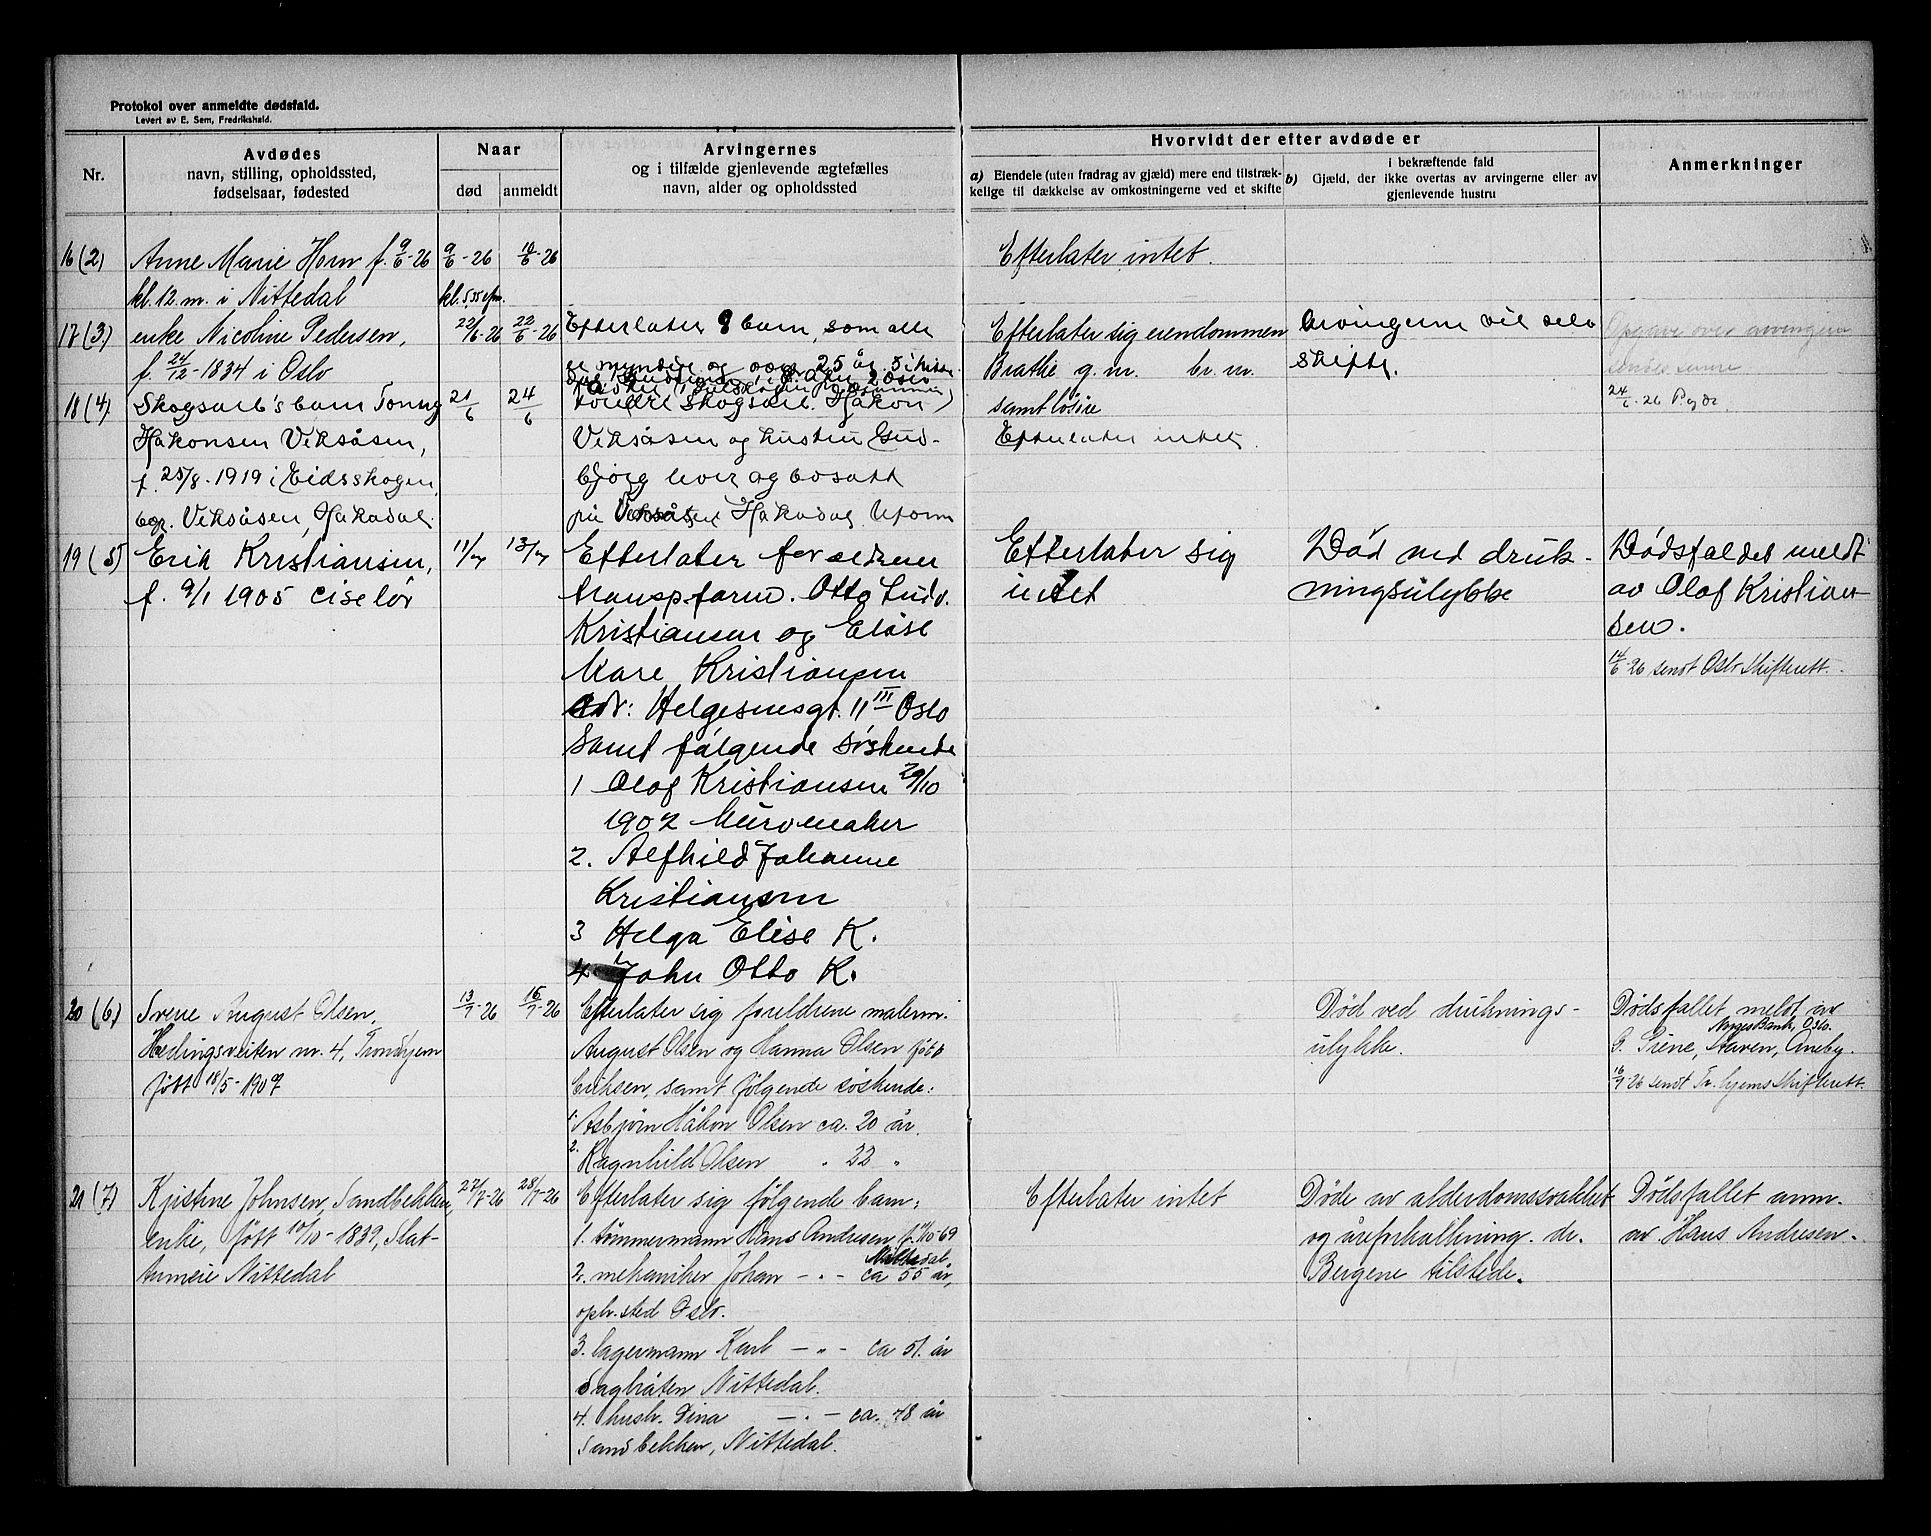 Protokol over anmeldte dødsfald.
Levert av E. Sem, Fredrikshald.
Nr.
Avdødes
navn, stilling, opholdssted,
fødselsaar, fødested
Naar
død
anmeldt
Arvingernes
og i tilfælde gjenlevende ægtefælles
navn, alder og opholdssted
Hvorvidt der efter avdøde er
a) Eiendele (uten fradrag av gjæld) mere end tilstræk-
kelige til dækkelse av omkostningerne ved et skifte
i bekræftende fald
b) Gjæld, der ikke overtas av arvingerne eller av
gjenlevende hustru
Anmerkninger
16 (2)
Anne Marie Horn f. 9/6-26
kl. 12 m. i Nittedal
9/6-26
kl. 5.35 efm.
10/6-26
Efterlater intet.
17 (3)
enke Nicoline Pedersen,
f. 24/12-1834 i Oslo
22/6-26
22/6-26
Efterlater 8 barn, som alle
er myndige og over 25 år.
Efterlater sig eiendommen
Brathe g.nr. br.nr.
samt løsøre
Arvingerne vil selv
skifte.
Opgave over arvingern
sendes senere
24/6-26
18 (4)
Skogsarb's barn Tonny
Håkonsen Viksåsen,
f. 25/8-1919 i Eidsskogen,
Viksåsen, Hakadal.
21/6
24/6
Foreldre skogsarb. Håkon
Viksåsen og hustru Gud-
bjørg lever og bosatt
på Viksåsen Hakadal
Efterlater intet
19 (5)
Erik Kristiansen,
f. 9/1 1905 ciselør
11/7
13/7
Efterlater forældrene
transp.form. Otto Ludv.
Kristiansen og Elise
Mare Kristiansen
adr: Helgesensgt. 11 III Oslo
Samt følgende søskende
1 Olaf Kristiansen 29/10
1902 Murvemaker
2. Alfhild Johanne
Kristiansen
3 Helga Elise K.
4 John Otto K.
Efterlater sig
intet
Død ved druk-
ningsulykke
Dødsfaldet meldt
av Olaf Kristian-
sen.
26 sendt Oslo Skifterett.
20 (6)
Svene August Olsen,
Hedingsveiten nr. 4, Trondhjem
født 18/5-1907
13/7-26
15/7-26
Efterlater sig foreldrene malerm.
August Olsen og Hanna Olsen født
Eriksen, samt følgende søskende:
1. Asbjørn Håkon Olsen ca. 20 år.
2. Ragnhild Olsen " 22 "
Død ved druknings-
ulykke.
Dødsfallet meldt av
Norges Bank, Oslo.
G. Siene, Staven, Aneby.
16/7-26 sendt Tr.hjems Skifterett.
21 (7)
Kristine Johnsen, Sandbekken,
enke, født 10/10-1839, Slat-
Anneie Nittedal
27/7-26
28/7-26
Efterlater sig følgende barn:
1. tømmermann Hans Andresen
Nittedal.
2. mekaniker Johan - " - ca 55 år,
oph.sted Oslo.
3. lagermann Karl - " - ca 51. år
Sagbråten Nittedal.
4. hush. Dina - " - ca. 48 år
Sandbekken, Nittedal.
Efterlater intet
Døde av alderdomssvakket
og åreforkalkning. dr.
Bergene tilstede.
Dødsfallet anm.
av Hans Andresen.